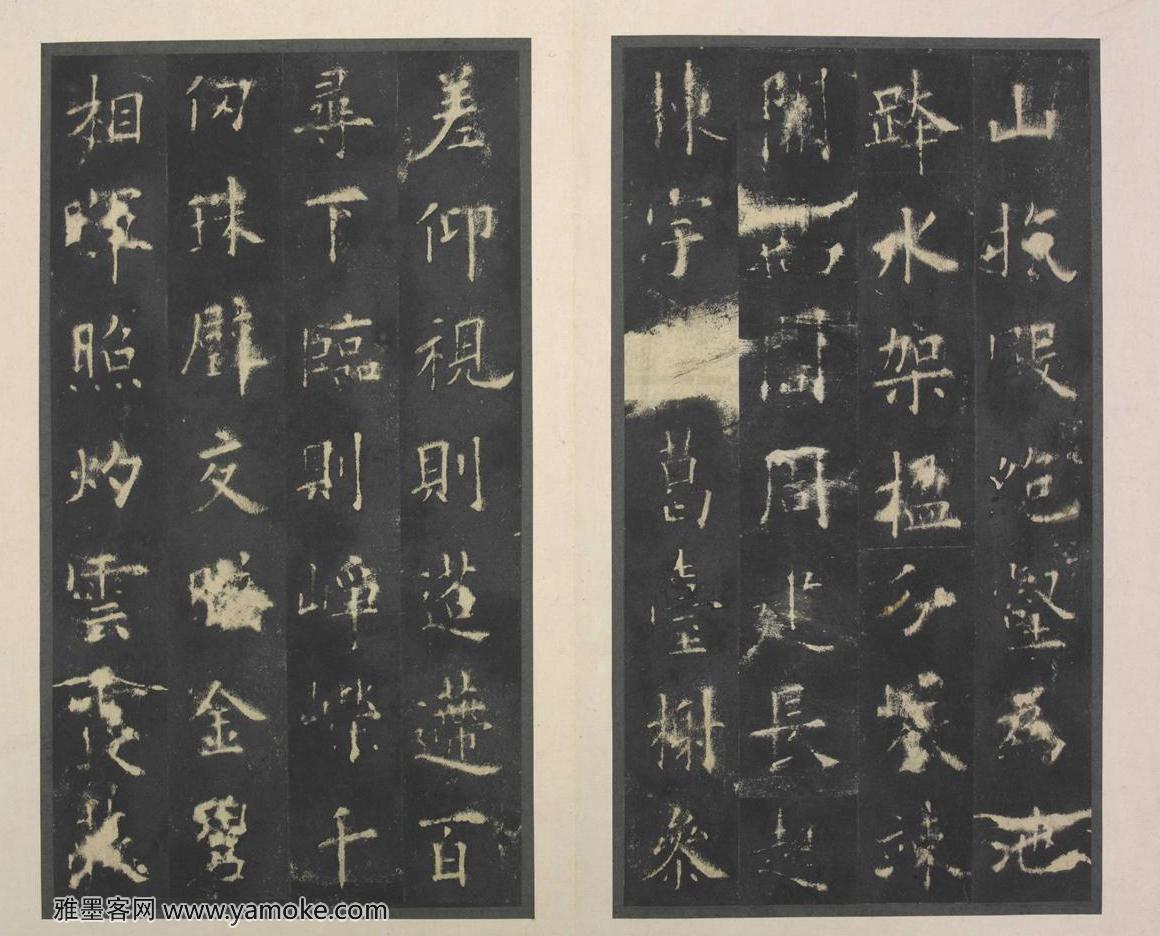 山抗殿絕壑為池
跨水架楹分巖竦
闕閣周建長起
棟宇葛臺榭參
差仰視則迢遰百
尋下臨則崢嶸千
仞珠璧交映金碧
相暉照灼雲霞蔽
雅墨客网 www.yamoke.com